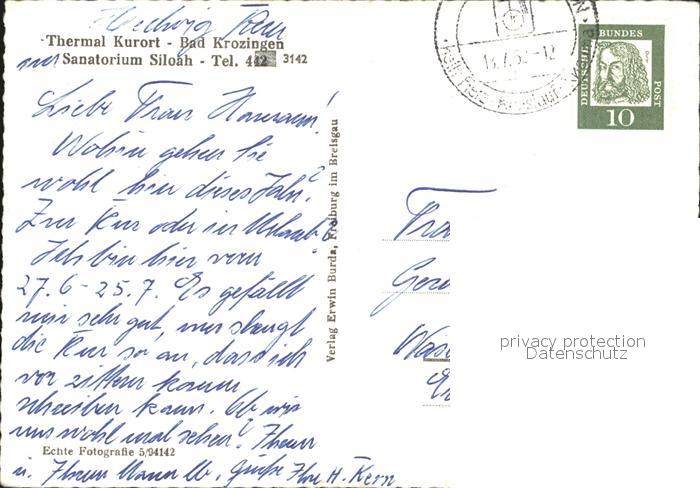 Hedwig Kern
Thermal Kurort - Bad Krozingen
Sanatorium Siloah - Tel. 442 3142
Liebe Frau
Wohin gehen Sie
wohl hin dieses Jahr?
Zur Kur oder in Urlaub?
Ich bin hier vom
27.6 - 25.7. Es gefällt
mir sehr gut, nur strengt
die Kur so an, dass ich
vor zittern kaum
schreiben kann. Ob wir
uns wohl mal sehen? Ihnen
Echte Fotografie 5/94142
u. Ihrem Mann lb. Grüße Ihre H. Kern
Verlag Erwin Burda, Freiburg im Breisgau
DEUTSCHE BUNDESPOST
10
privacy protection
Datenschutz